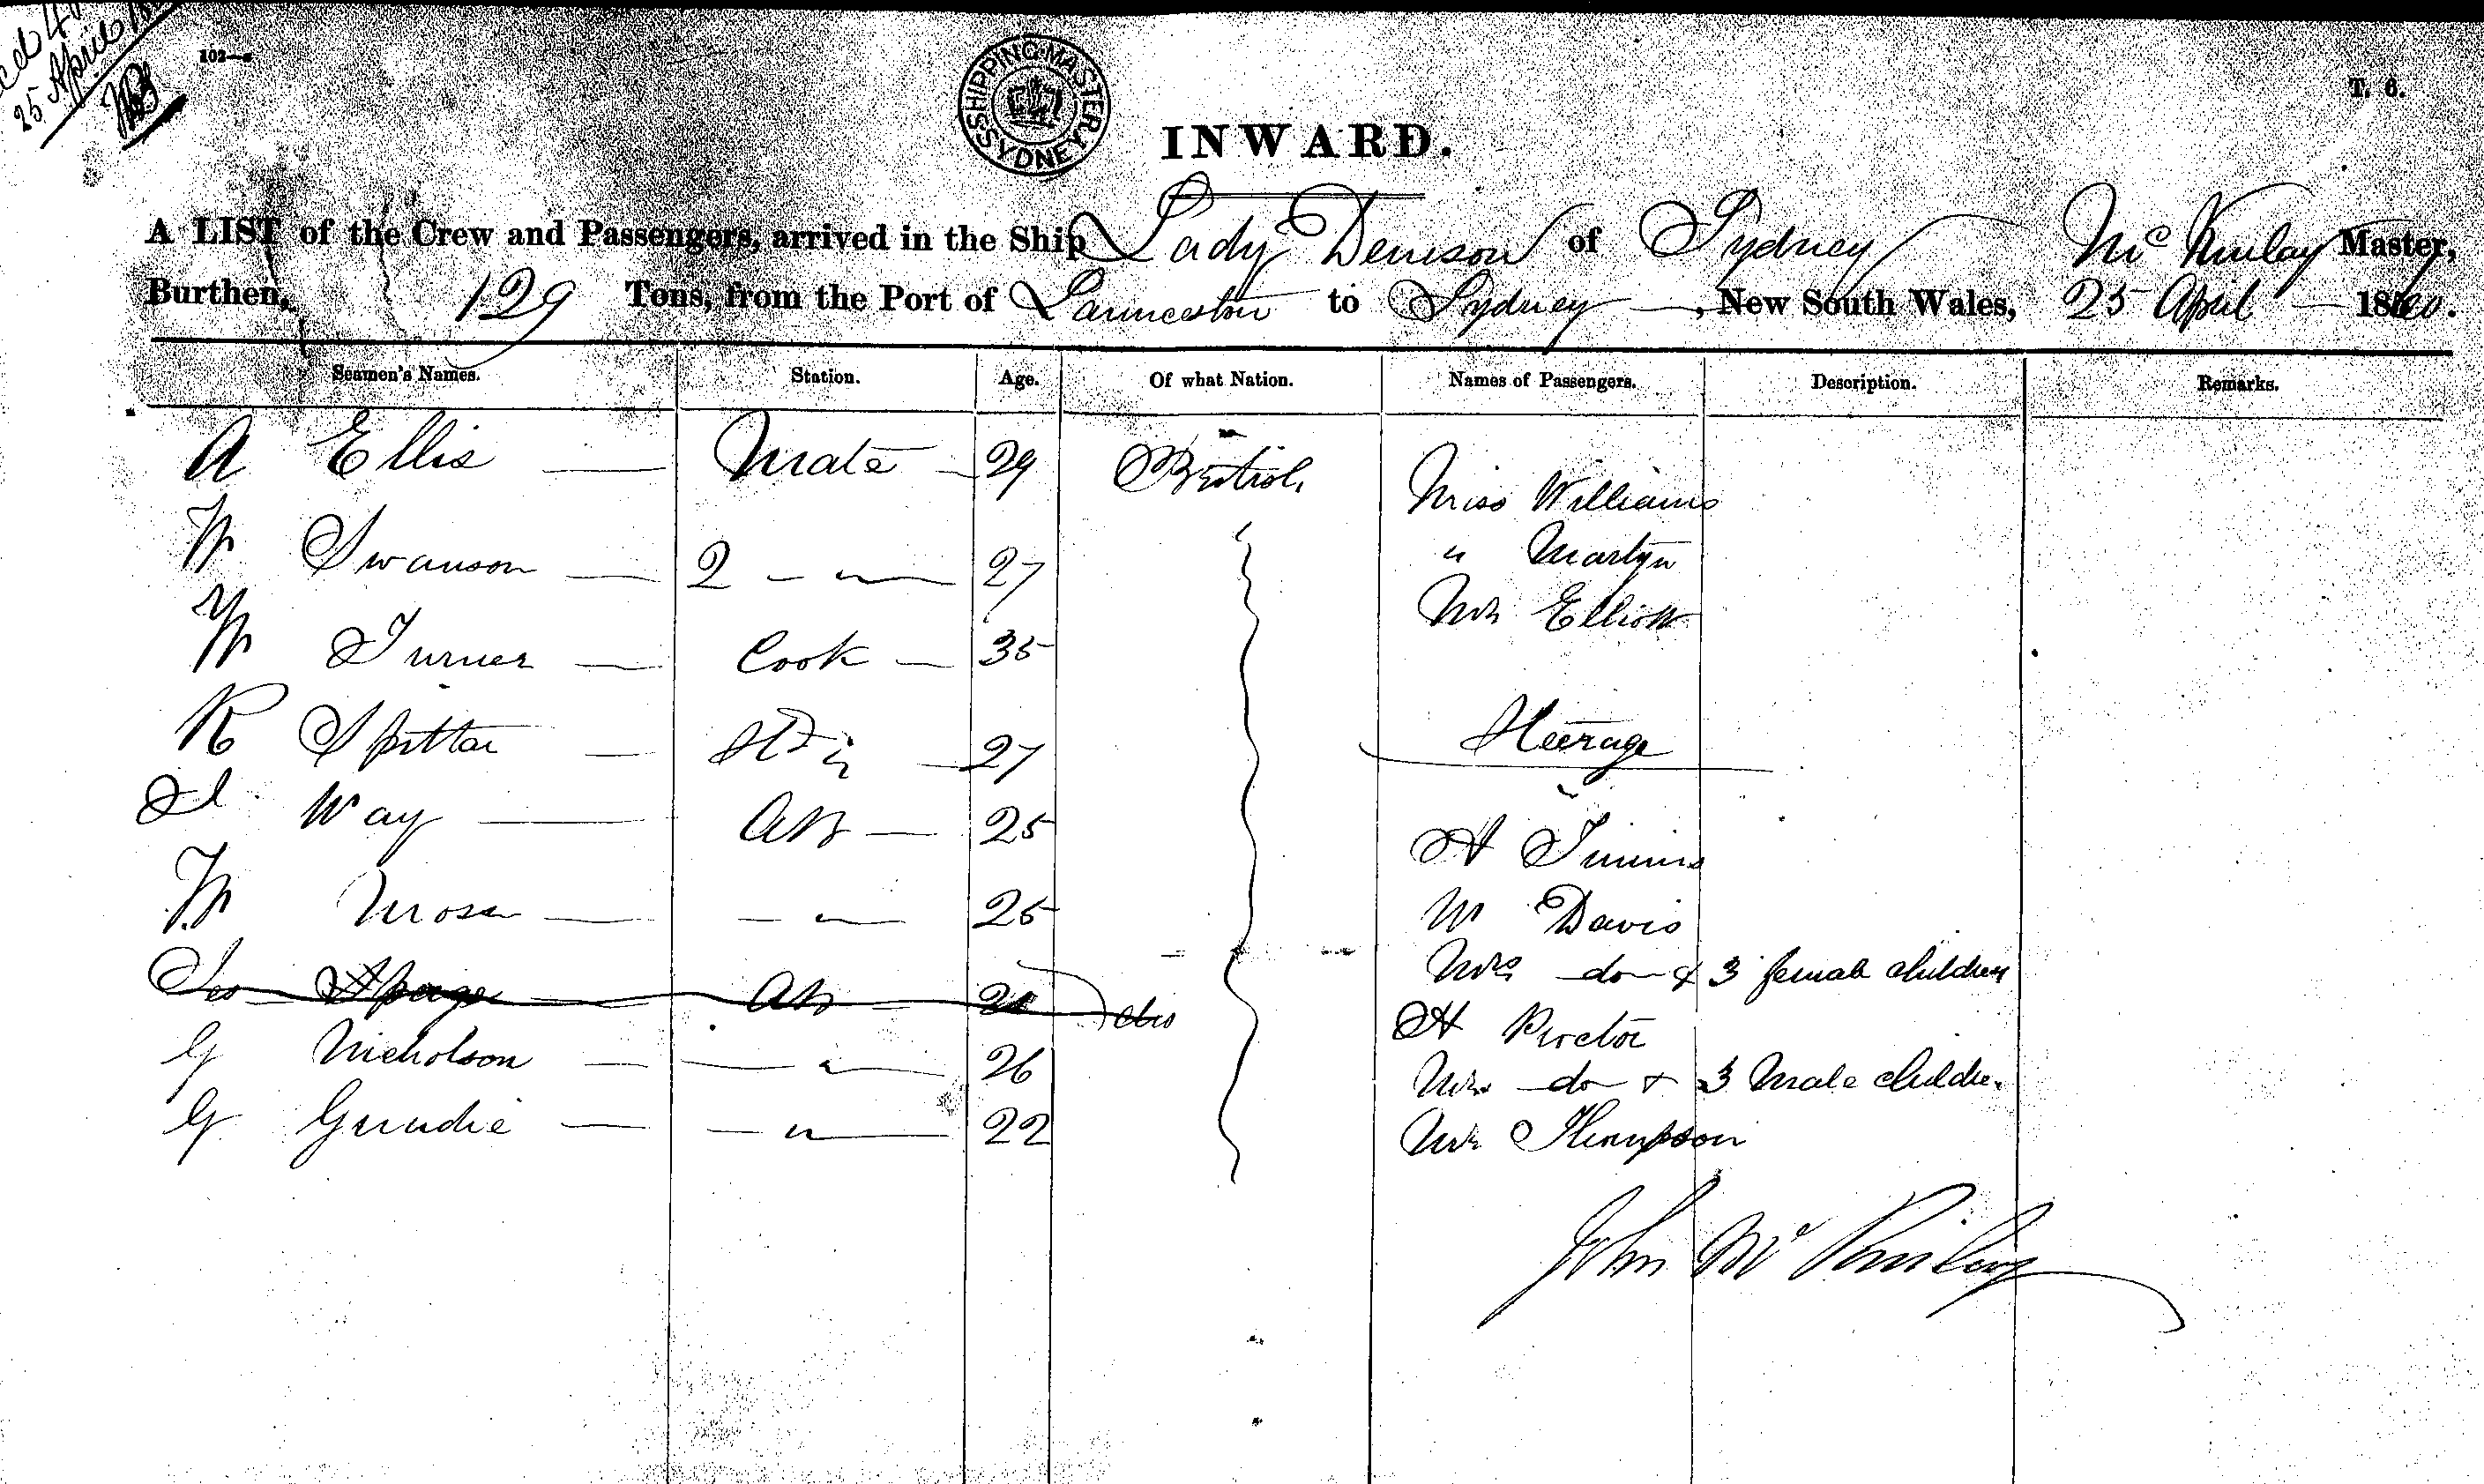 25 April
102—
SHIPPING MASTER SYDNEY
T. 6.
INWARD.
A LIST of the Crew and Passengers, arrived in the Ship Lady Denison of Sydney Mc Kinlay Master,
Burthen, 129 Tons, from the Port of Launceston to Sydney, New South Wales, 25 April 1860.
Seamen's Names. Station. Age. Of what Nation. Names of Passengers. Description. Remarks.
A Ellis — Mate — 29 British Miss Williams
W Swanson — 2 — " — 27 " Martyn
W Turner — Cook — 35 Mr Elliott
R — 27 Steerage
I Way — AB — 25 H Timms
W — " — 25 W Davis
AB Mrs do & 3 female children
G Nicholson — — " — 26 H Proctor
Mrs do + 3 Male children
G — — " — 22 Mr Thompson
John Mc Kinlay